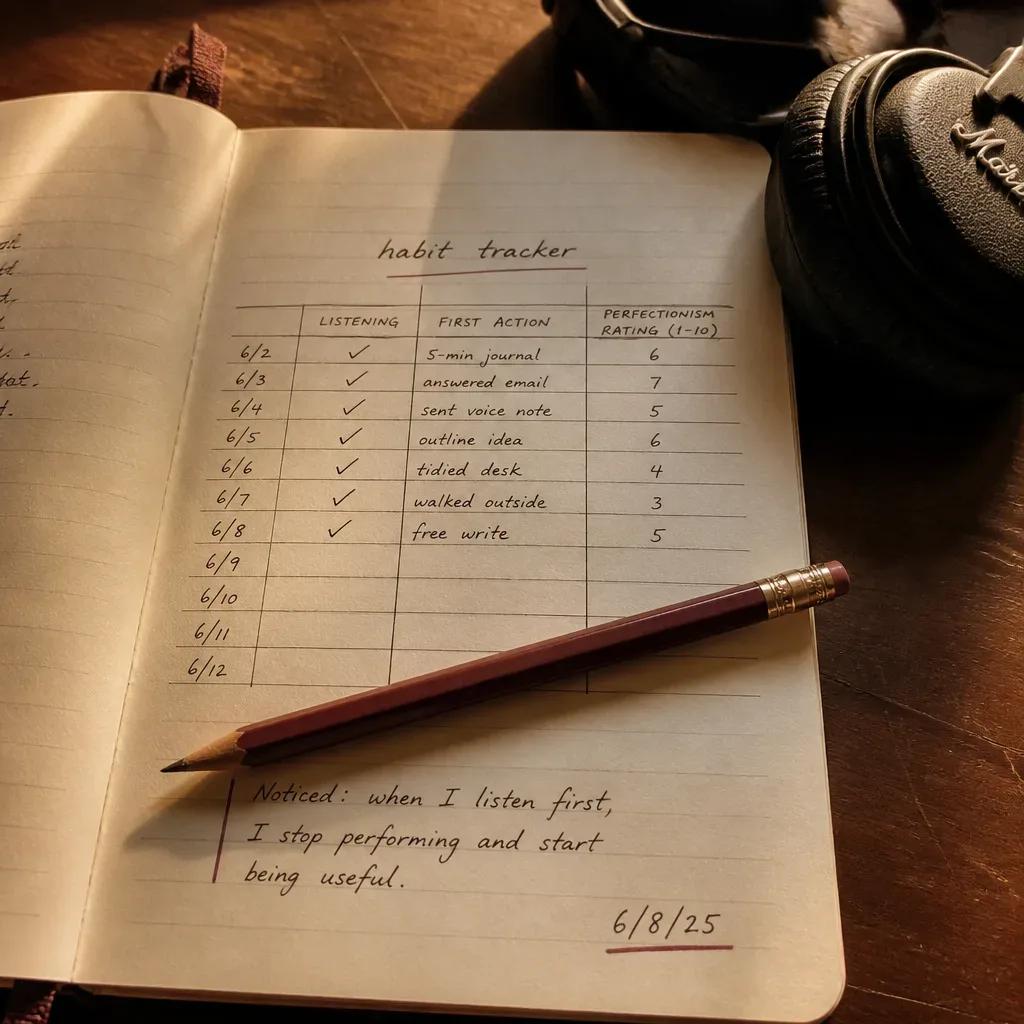 habit tracker
LISTENING FIRST ACTION PERFECTIONISM RATING (1-10)
6/2 ✓ 5-min journal 6
6/3 ✓ answered email 7
6/4 ✓ sent voice note 5
6/5 ✓ outline idea 6
6/6 ✓ tidied desk 4
6/7 ✓ walked outside 3
6/8 ✓ free write 5
6/9
6/10
6/11
6/12
Noticed: when I listen first,
I stop performing and start
being useful.
6/8/25